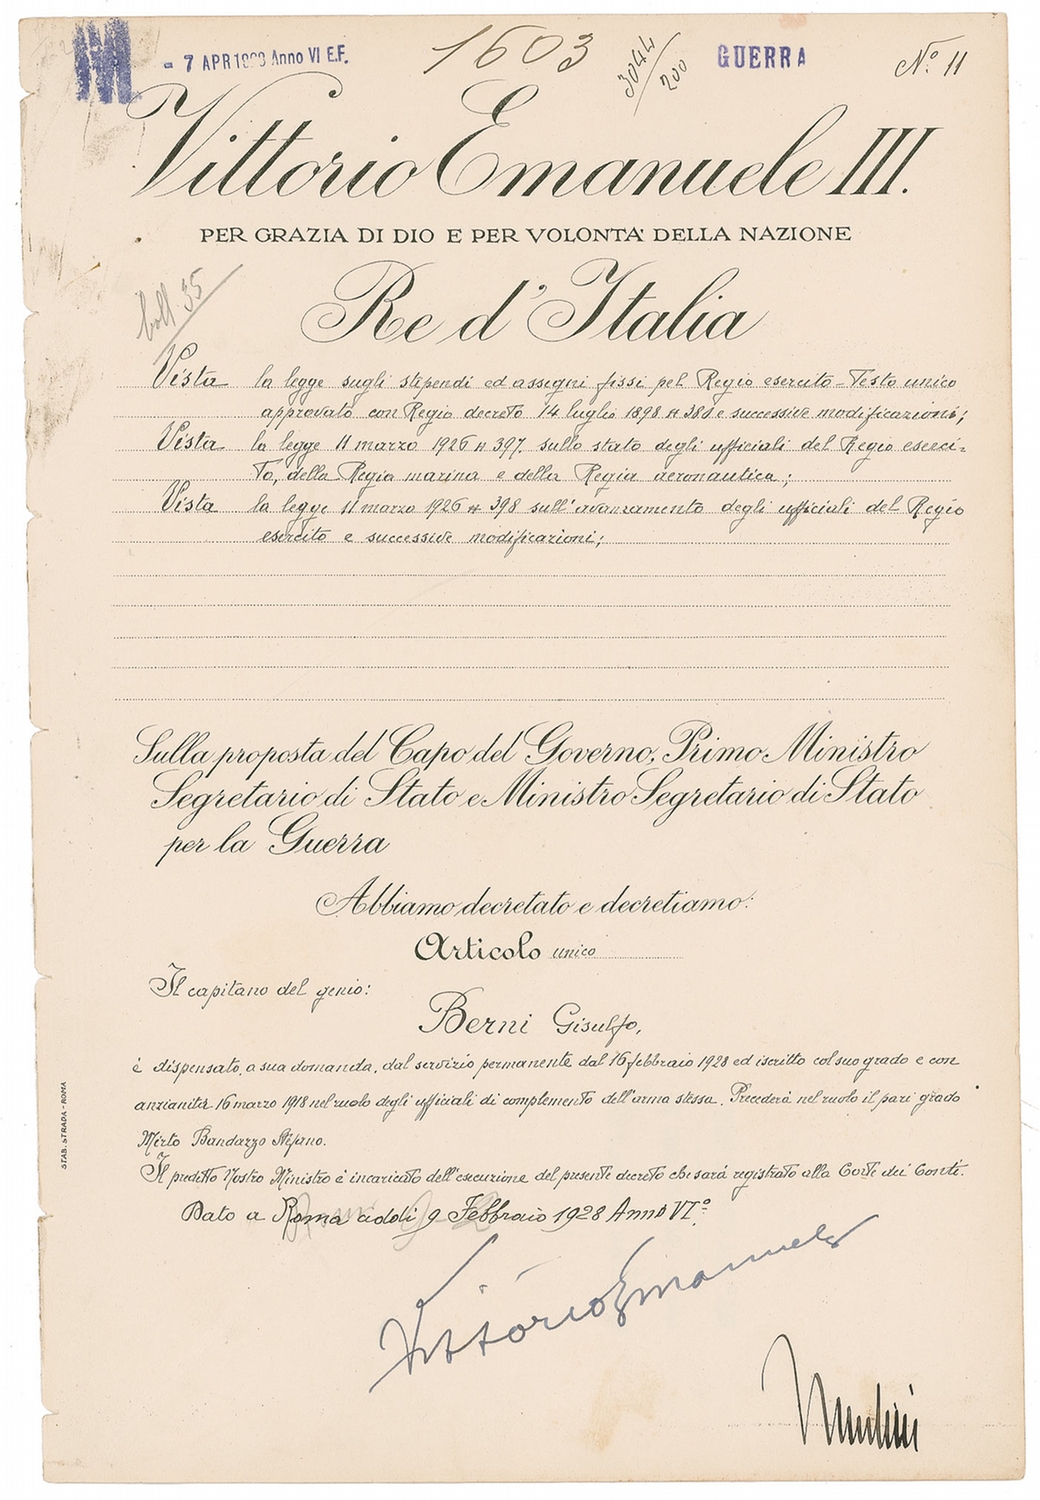 - 7 APR 1928 Anno VI E.F.
1603
3044/200
GUERRA
N.º 11
Vittorio Emanuele III.
PER GRAZIA DI DIO E PER VOLONTA' DELLA NAZIONE
Re d'Italia
boll. 35
Vista la legge sugli stipendi ed assegni fissi pel Regio esercito - Testo unico
approvato con Regio decreto 14 luglio 1898 n 380 e successive modificazioni;
Vista la legge 11 marzo 1926 n 397. sullo stato degli ufficiali del Regio eserci-
to, della Regia marina e della Regia aeronautica;
Vista la legge 11 marzo 1926 n 398 sull'avanzamento degli ufficiali del Regio
esercito e successive modificazioni;
Sulla proposta del Capo del Governo, Primo Ministro
Segretario di Stato e Ministro Segretario di Stato
per la Guerra
Abbiamo decretato e decretiamo:
Articolo unico
Il capitano del genio:
Berni Gisulfo,
è dispensato, a sua domanda, dal servizio permanente dal 16 febbraio 1928 ed iscritto col suo grado e con
anzianità 16 marzo 1918 nel ruolo degli ufficiali di complemento dell'arma stessa. Precederà nel ruolo il pari grado
Mirto Bandazzo Stefano.
Il predetto Nostro Ministro è incaricato dell'esecuzione del presente decreto che sarà registrato alla Corte dei Conti.
Dato a Roma addì 9 Febbraio 1928 Anno VI.º
Vittorio Emanuele
Mussolini
STAB. STRADA - ROMA